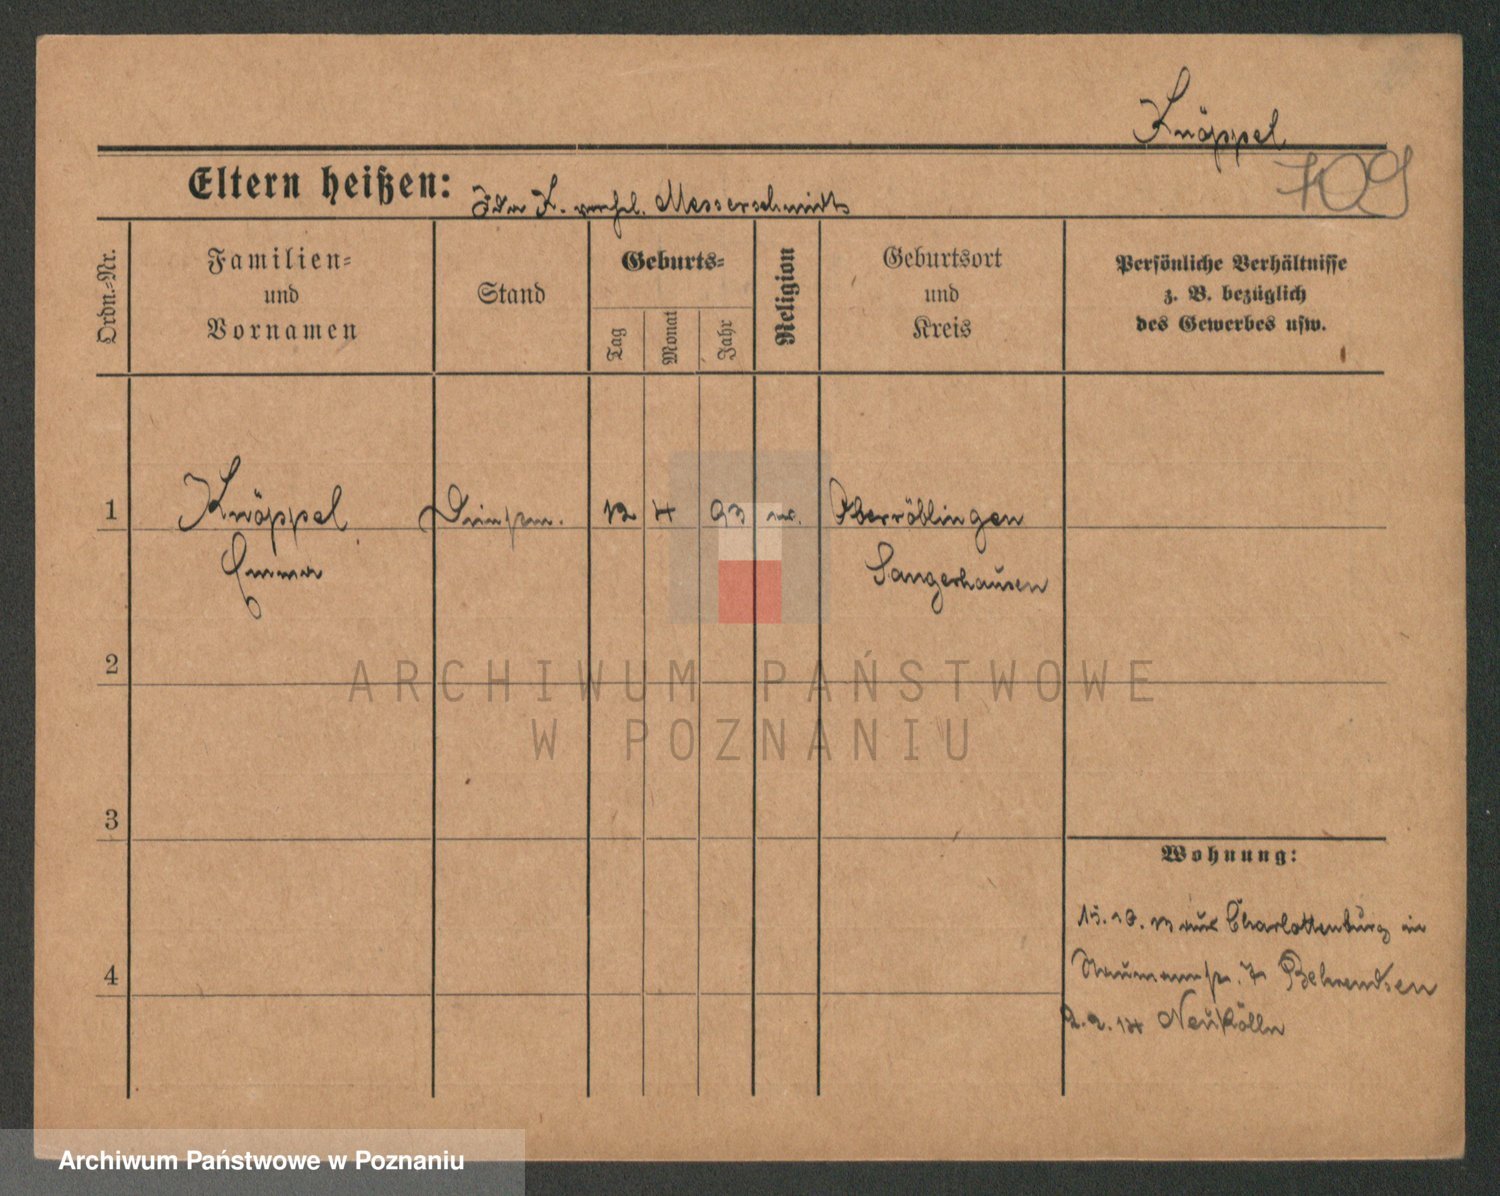 Knöppel
709
Eltern heißen: Ida K. verhel. Messerschmidt
Ordn.-Nr.
Familien-
und
Vornamen
Stand
Geburts-
Tag
Monat
Jahr
Religion
Geburtsort
und
Kreis
Persönliche Verhältnisse
z. B. bezüglich
des Gewerbes usw.
1 Knöppel 4 93 Oberröblingen
Emma Sangerhausen
2
3
4
Wohnung:
15.10.13 aus Charlottenburg in
Naumannstr. 7 Behrendsen
2.2.14 Neukölln
ARCHIWUM PAŃSTWOWE
W POZNANIU
Archiwum Państwowe w Poznaniu